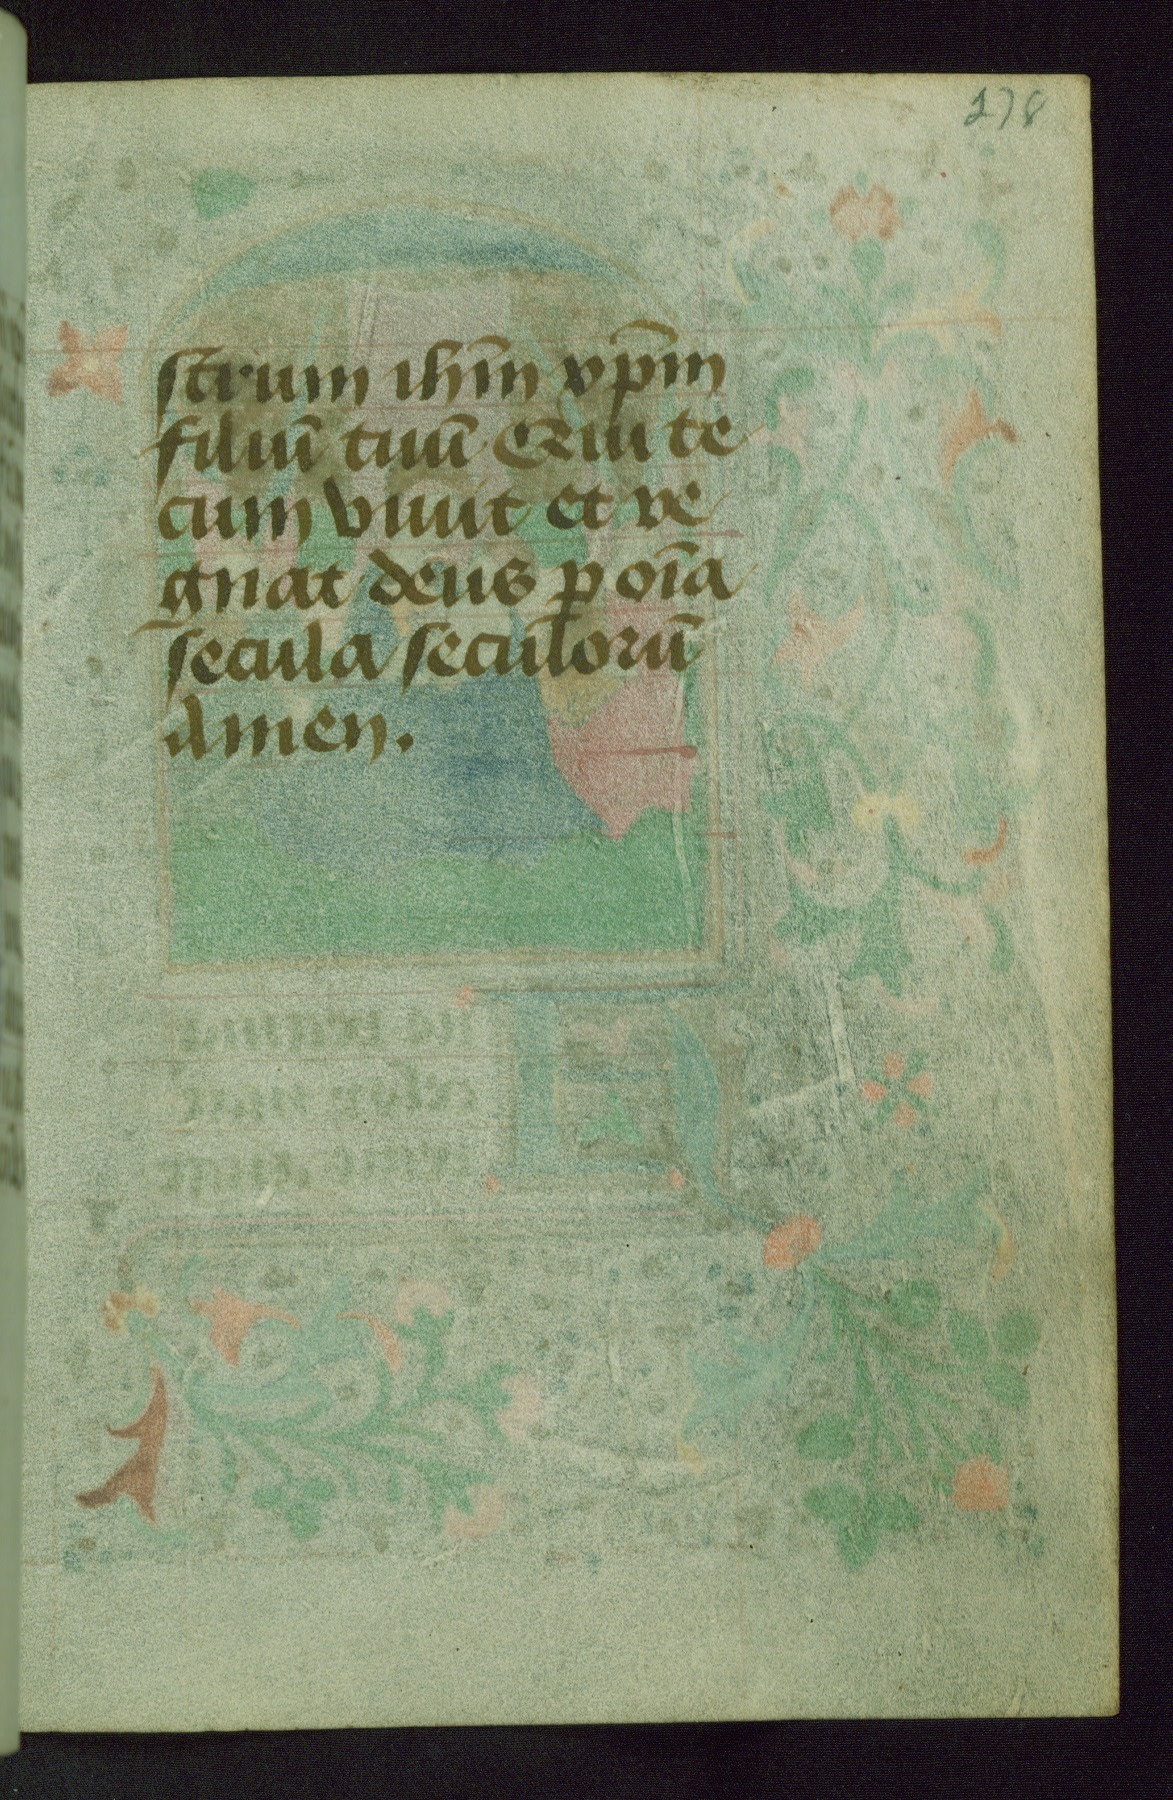 278
strum ihm̄ xp̄m
filiū tuū Qui te
cum viuit et re
gnat deus p oīa
secula seculorū
Amen.